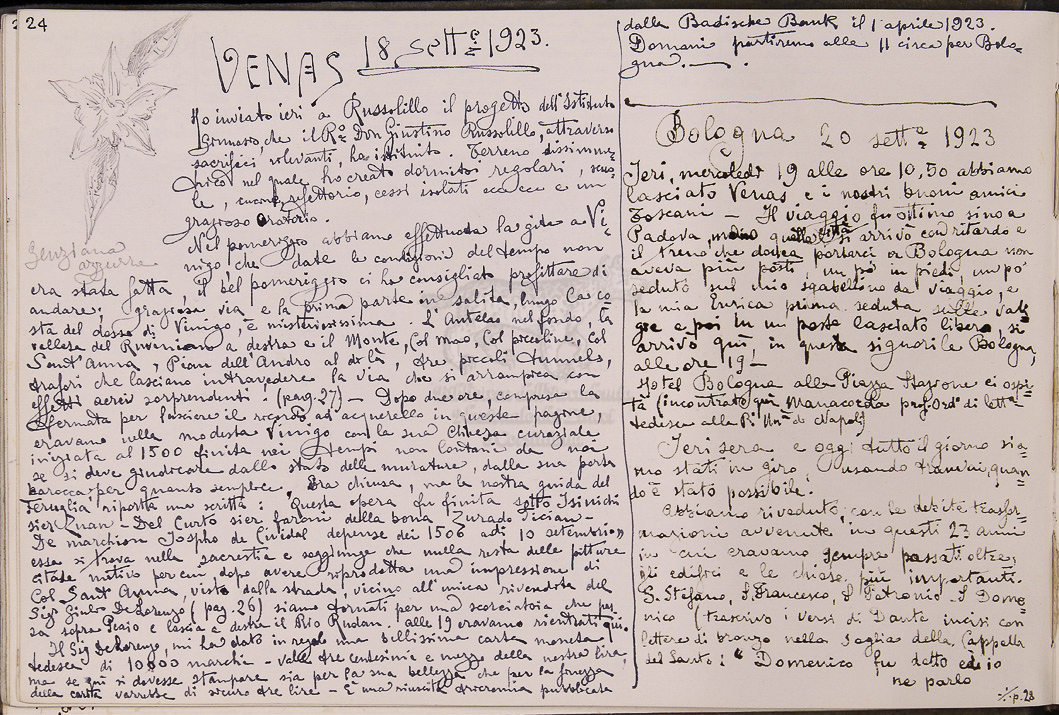 24
VENAS 18 sett.e 1923.
Ho inviato ieri a Russolillo il progetto dell'Istituto
che il R.o Don Giustino Russolillo, attraverso
sacrifici rilevanti, ha istituito. Terreno
nel quale ho creato dormitori regolari,
le, cucine, refettorio, cessi isolati ecc ecc e un
grazioso oratorio.
Nel pomeriggio abbiamo effettuata la gita a Vi-
nigo, che date le condizioni del tempo non
Genziana
azzurra
era stata fatta, il bel pomeriggio ci ha consigliato profittare di
andare; graziosa via e la prima parte in salita, lungo la co-
sta del dosso di Vinigo, è misteriosissima. L'Antelao nel fondo, la
vallesa del Ruvinian a destra e il Monte, Col mao, Col piccolino, Col
Sant'Anna, Pian dell'Andro al di là, tre piccoli tunnels,
trafori che lasciano intravedere la via che si arrampica con
effetti aerei sorprendenti: (pag. 27) - Dopo due ore, compresa la
fermata per lasciare il ricordo ad acquerello in queste pagine,
eravamo nella modesta Vinigo con la sua Chiesa curaziale
iniziata al 1500 finita nei tempi non lontani da noi
se si deve giudicare dallo stato delle murature, dalla sua porta
barocca per quanto semplice. Era chiusa, ma la nostra guida del
Feruglia riporta una scritta: Questa opera fu finita sotto
sier Zuan - Del Curto sier della bona Zurado Tician -
De marchion Jospho de Cividal depense dei 1506 adi 10 setembrio
essa si trova nella sacrestia e soggiunge che nulla resta delle pitture
citate metivo per cui dopo avere riprodotta una impressione di
Col Sant'Anna, vista dalla strada, vicino all'unica rivendita del
Sig. Giulio De Lorenzo (pag. 26) siamo tornati per una scorciatoia che pas-
sa sopra Peaio e lascia a destra il Rio Rudan. alle 19 eravamo rientrati qui.
Il Sig De Lorenzo, mi ha dato in regalo una bellissima carta moneta
tedesca di 10000 marchi - vale tre centesimi e mezzo della nostra lira,
ma se qui si dovesse stampare sia per la sua bellezza che per la finezza
della carta varrebbe di sicuro tre lire - È una riuscita tricromia pubblicata
dalla Badische Bank il 1 aprile 1923.
Domani partiremo alle 11 circa per Bolo-
gna.
Bologna 20 sett.e 1923
Ieri, mercoledì 19 alle ore 10,50 abbiamo
lasciato Venas e i nostri buoni amici
Toscani - Il viaggio fu ottimo sino a
Padova, quella città si arrivò con ritardo e
il treno che doveva portarci a Bologna non
aveva più posti, un po' in piedi, un po'
seduto sul mio sgabellino da viaggio, e
la mia Enrica prima seduta sulle vali-
gie e poi in un posto lasciato libero, si
arrivò quì in questa signorile Bologna,
alle ore 19 -
Hotel Bologna alla Piazza Stazione ci ospi-
ta (incontrato qui Manacorda prof. Ord. di lett.
tedesca alla R. Un. di Napoli)
Ieri sera e oggi tutto il giorno sia-
mo stati in giro, usando tramvai, quan-
do è stato possibile.
Abbiamo riveduto, con le debite trasfor-
mazioni avvenute in questi 23 anni
in cui eravamo sempre passati oltre,
gli edifici e le chiese più importanti.
S. Stefano, S. Francesco, S. Petronio. S. Dome-
nico (trascrivo i versi di Dante incisi con
lettere di bronzo nella soglia della Cappella
del Santo: " Domenico fu detto ed io
ne parlo
./. p. 28